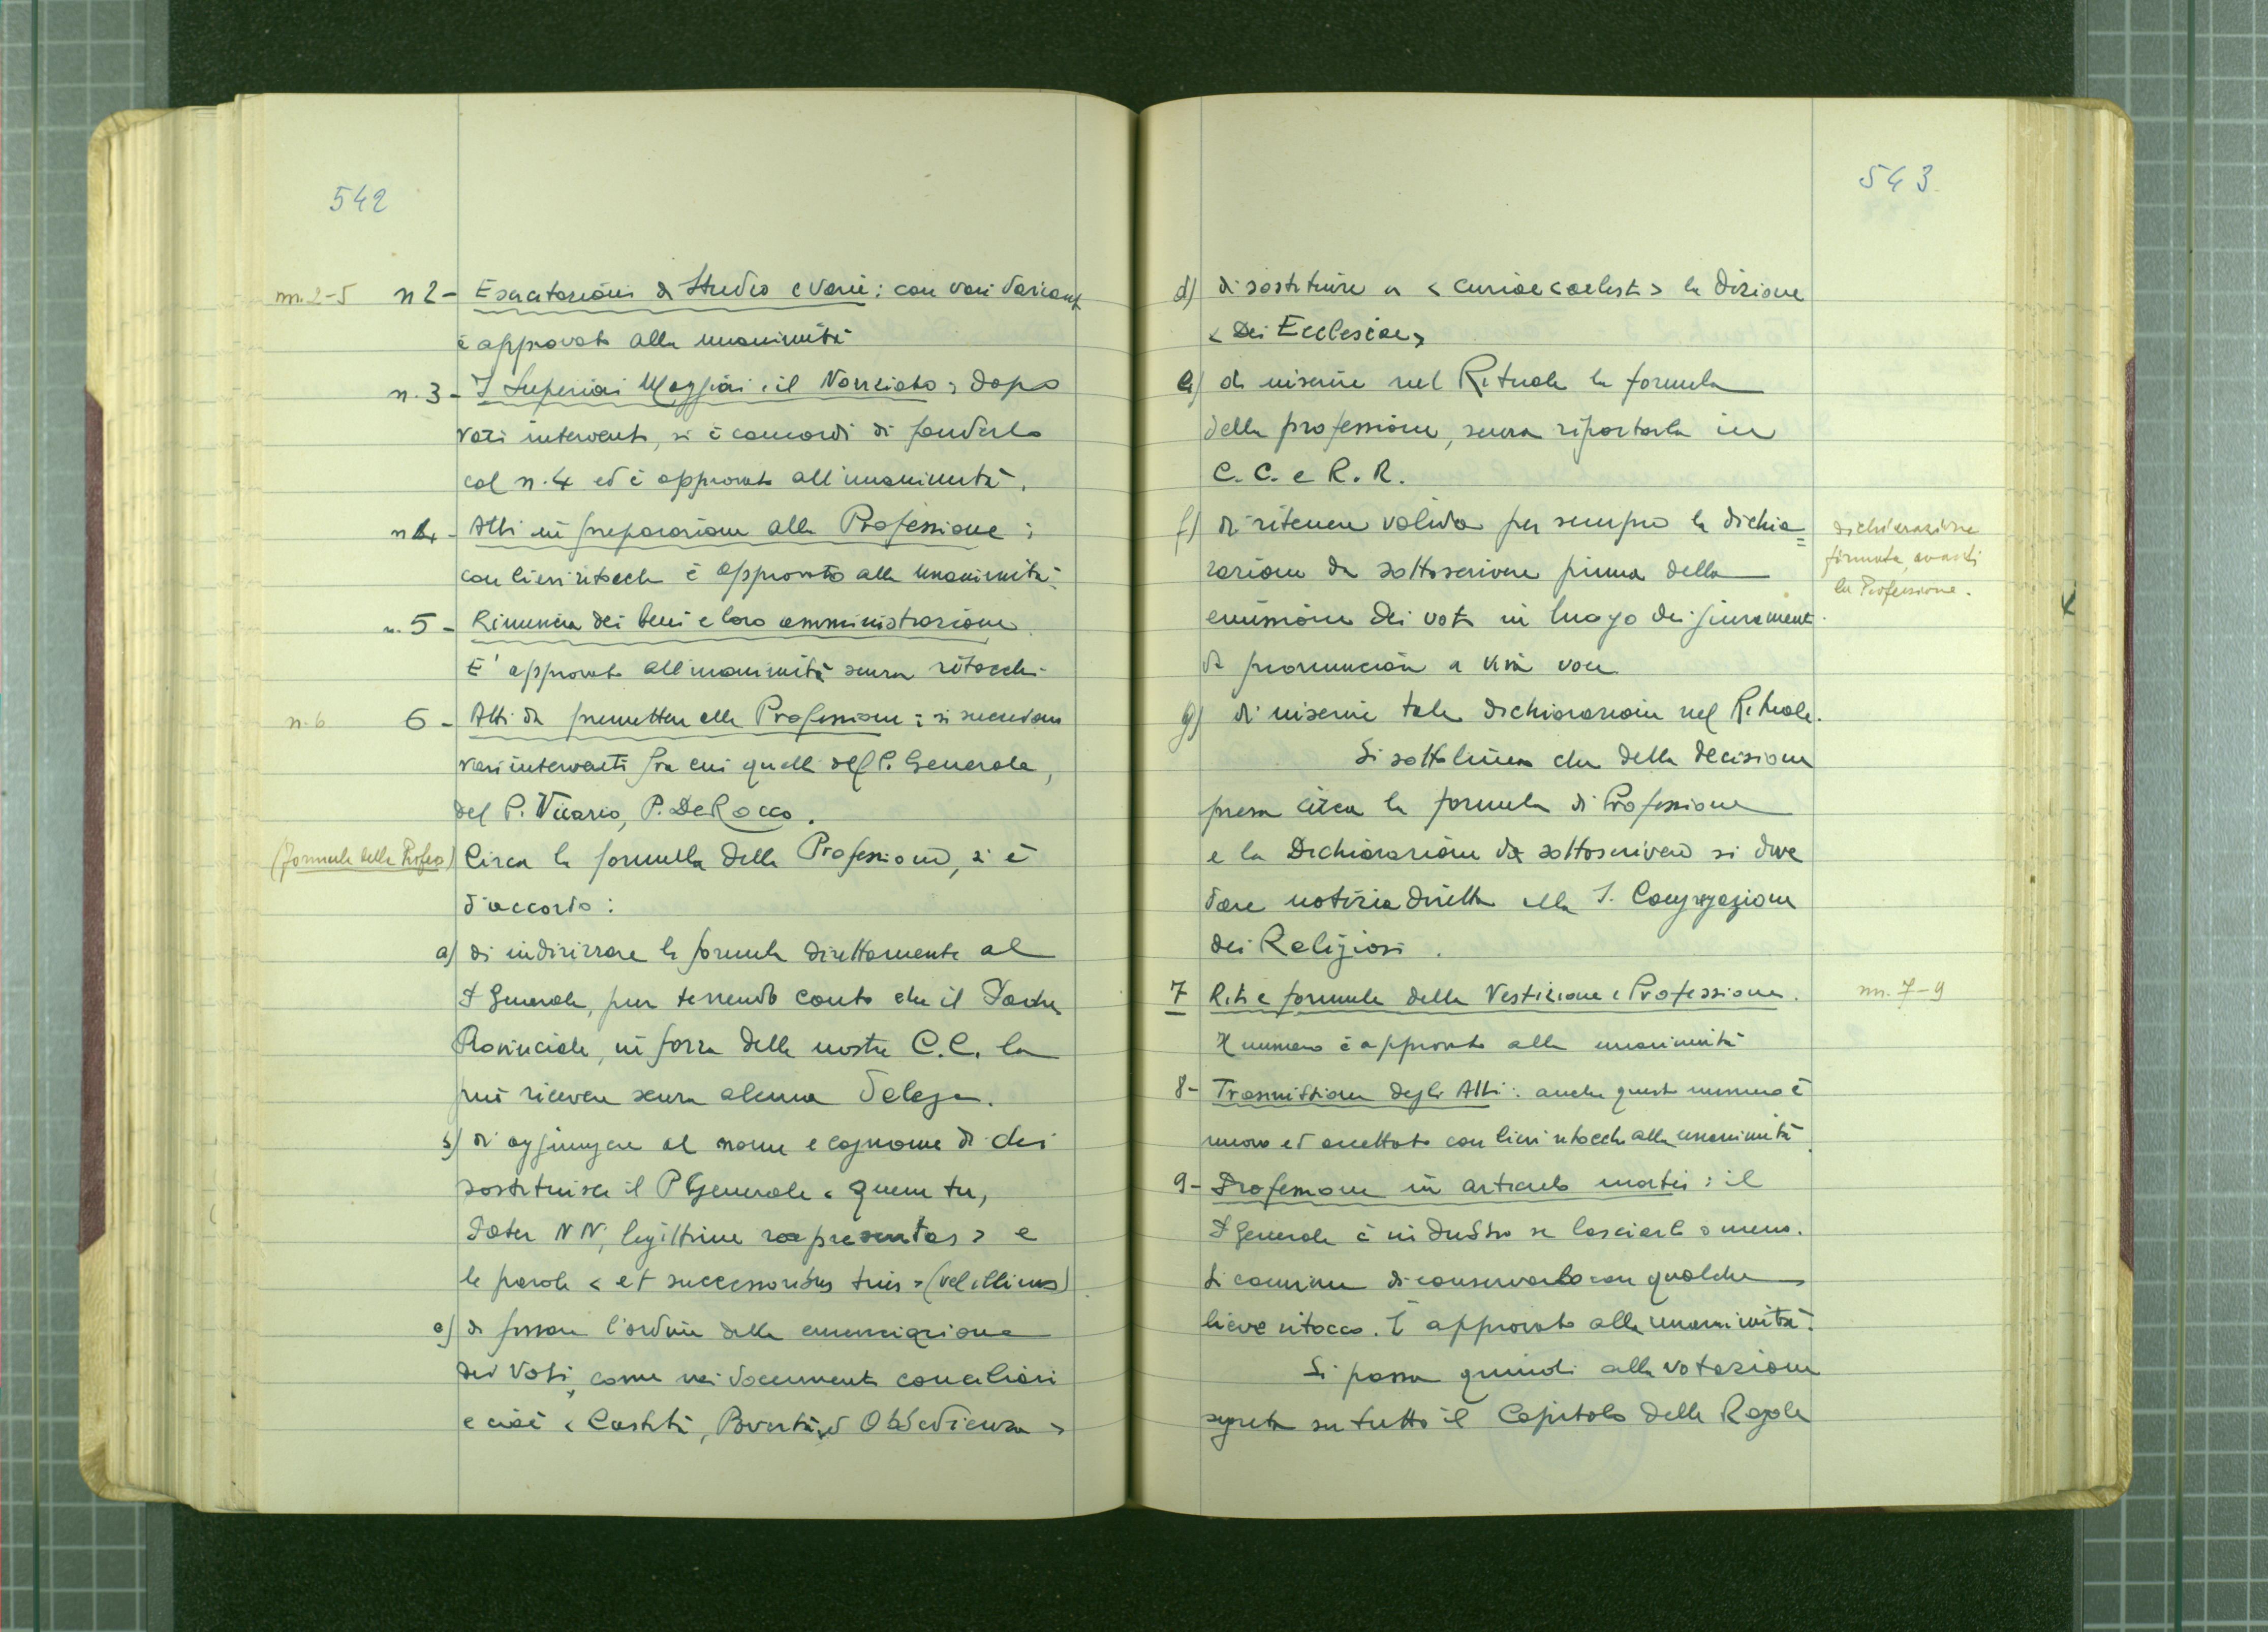 542
nn. 2-5
n 2 - Esercitazioni di Studio e varie: con vari varianti
è approvato alla unanimità
n. 3 - I Superiori Maggiori e il Noviziato; dopo
vari interventi, si è concordi di fonderlo
col n. 4 ed è approvato all'unanimità.
n 4 - Atti in preparazione alla Professione;
con lievi ritocchi è approvato alla unanimità.
n. 5 - Rinuncia dei beni e loro amministrazione.
E' approvato all'unanimità senza ritocchi.
n. 6
6 - Atti da premettere alla Professione; si succedono
vari interventi fra cui quelli del P. Generale,
del P. Vicario, P. De Rocco.
(formula della Profess)
Circa la formula della Professione, si è
d'accordo:
a) di indirizzare la formula direttamente al
P Generale, pur tenendo conto che il Padre
Provinciale, in forza delle nostre C.C. la
può ricevere senza alcuna Delega.
b) di aggiungere al nome e cognome di chi
sostituisce il P Generale < quem tu,
Pater NN, legittime repraesentas > e
le parole < et successoribus tuis > (vel illius)
c) di fissare l'ordine della enunciazione
dei Voti, come nei documenti conciliari
e cioè < Castità, Povertà, ed Obbedienza >
543
d) di sostituire a < curiae coelesti > la dizione
< Dei Ecclesiae >
e) di inserire nel Rituale la formula
della professione, senza riportarla in
C. C. e R. R.
f) di ritenere valida per sempre la dichia=
razione da sottoscrivere prima della
emissione dei voti in luogo dei giuramenti
da pronunciarsi a viva voce
dichiarazione
firmata, avanti
la Professione.
g) di inserire tale dichiarazione nel Rituale.
Si sottolinea che della decisione
presa circa la formula di Professione
e la Dichiarazione da sottoscrivere si deve
dare notizia diretta alla S. Congregazione
dei Religiosi.
7 Riti e formule della Vestizione e Professione.
nn. 7-9
Il numero è approvato alla unanimità
8 - Trasmissione degli Atti: anche questo numero è
nuovo ed accettato con lievi ritocchi alla unanimità.
9 - Professione in articulo mortis: il
P Generale è in dubbio se lasciarlo o meno.
Si conviene di conservarlo con qualche
lieve ritocco. È approvato alla unanimità.
Si passa quindi alla votazione
segreta su tutto il Capitolo delle Regole